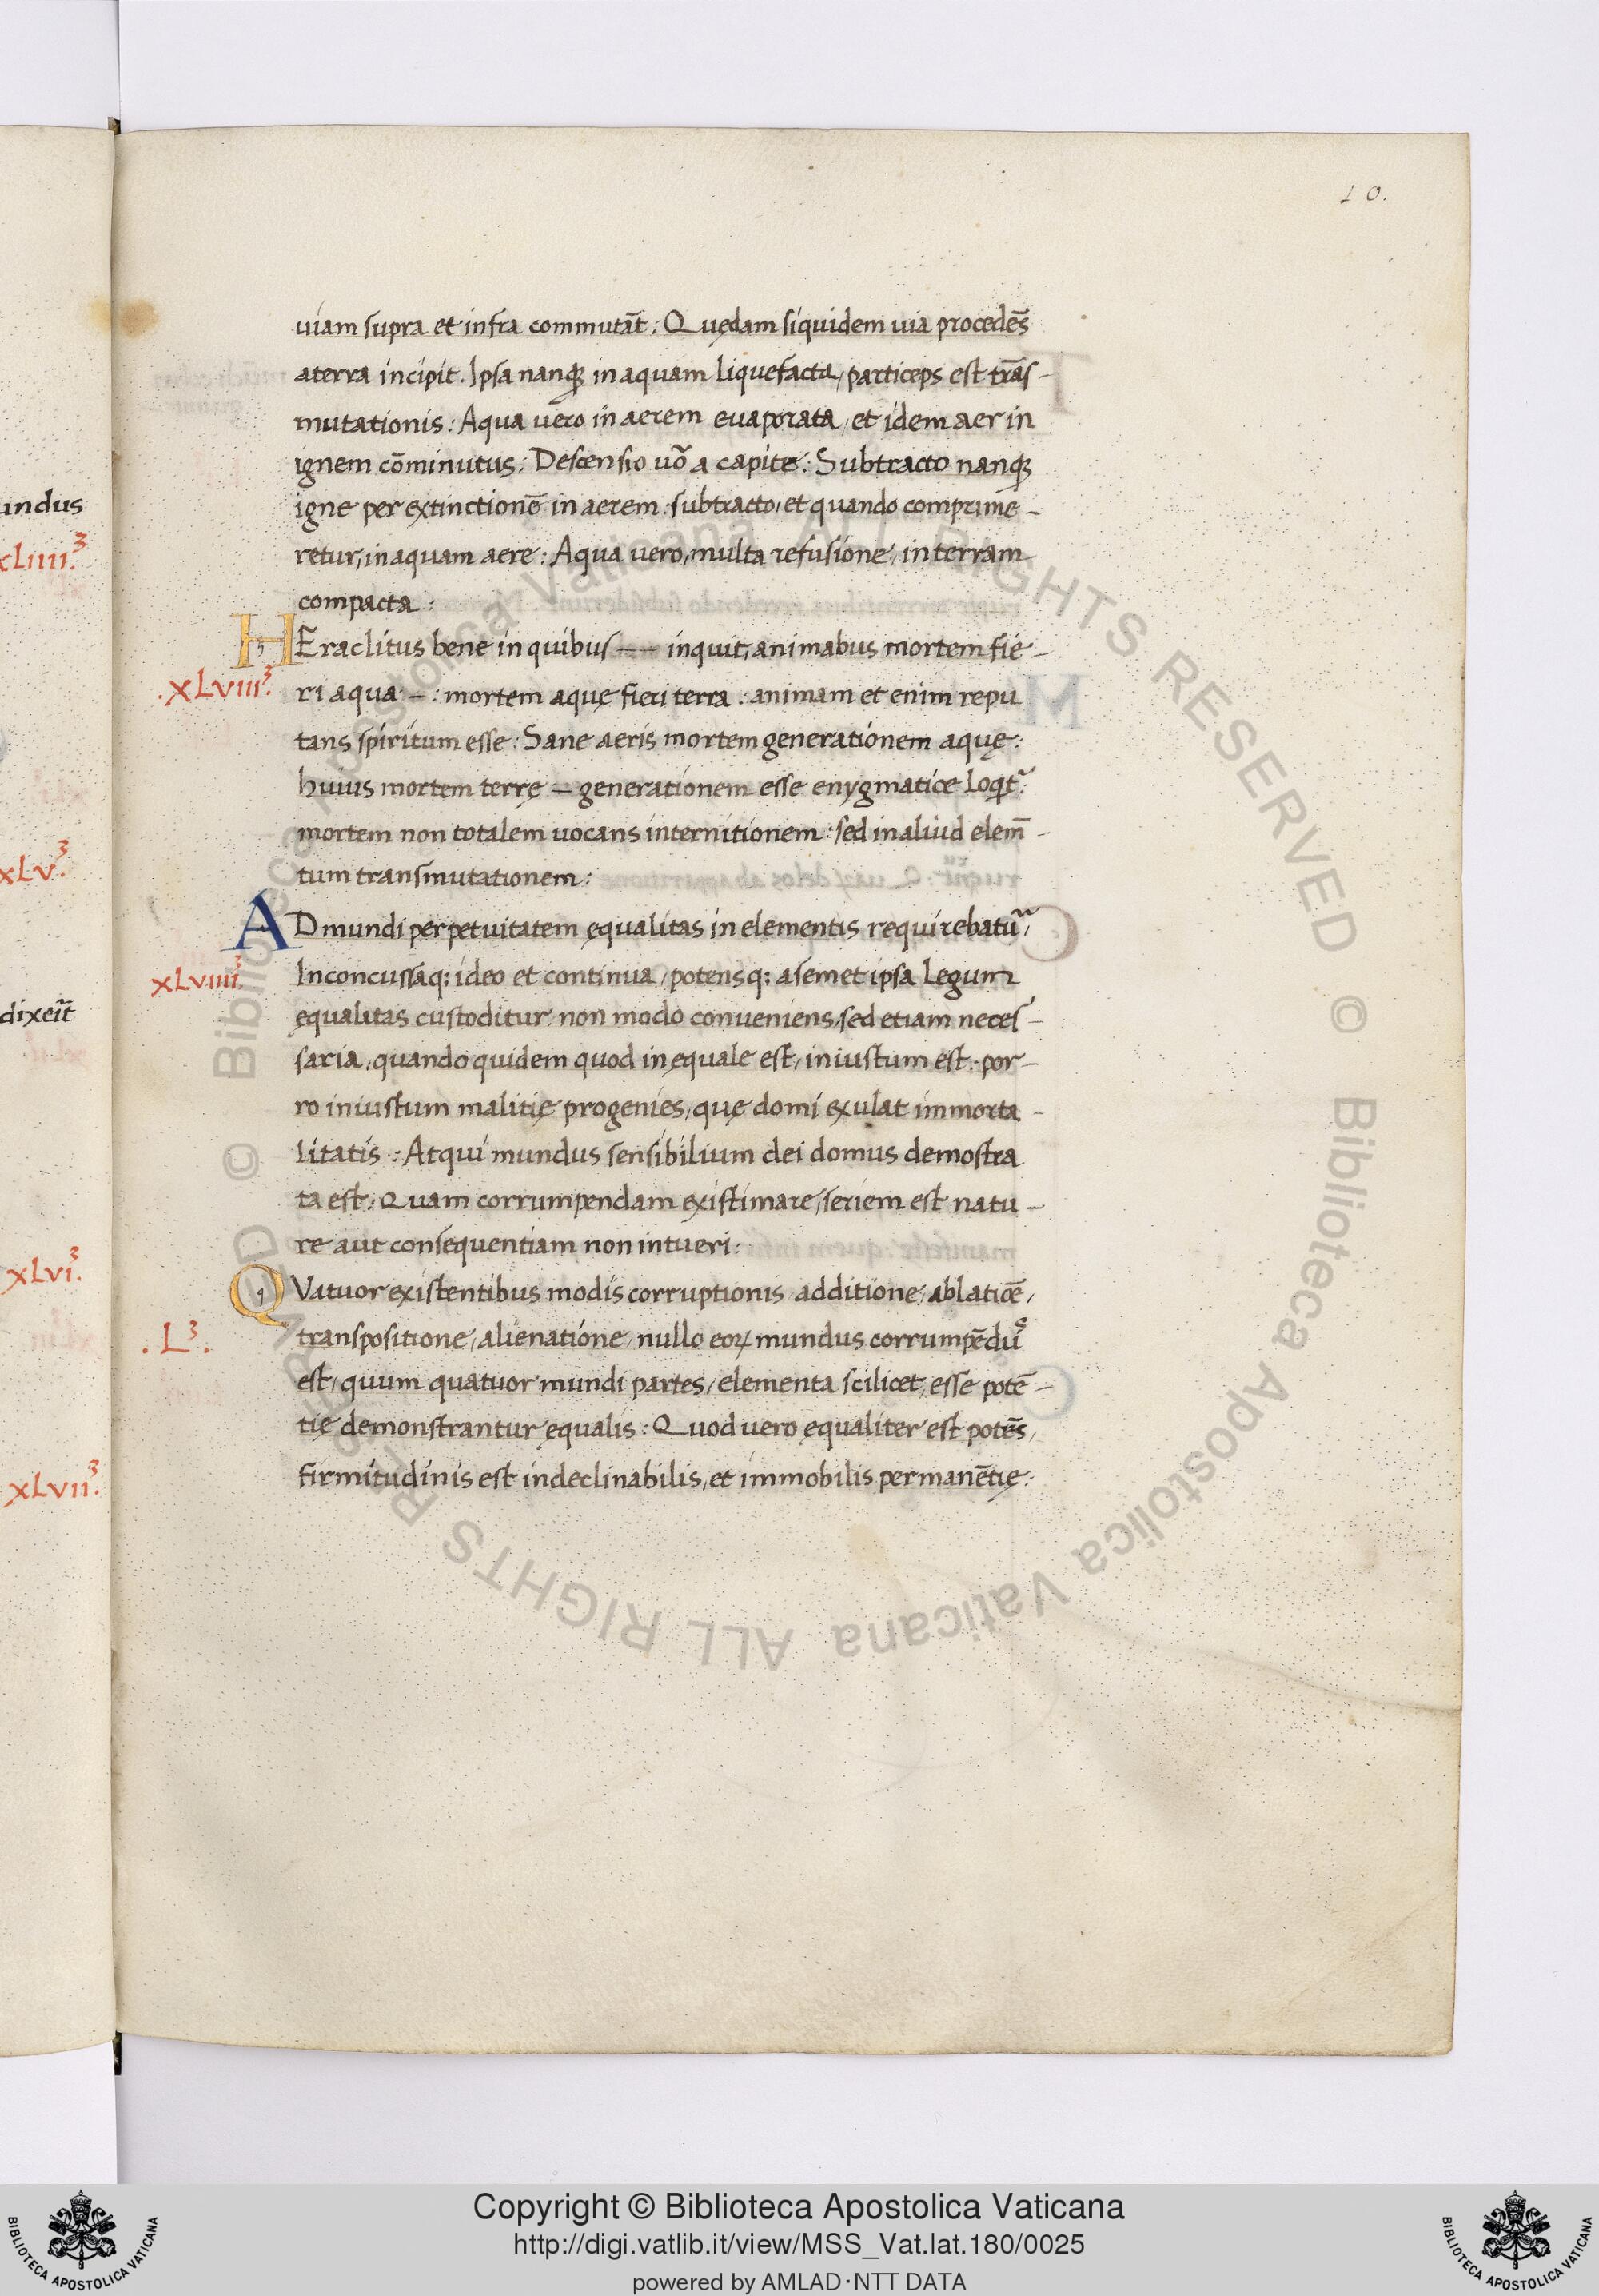 10.
uiam supra et infra commutãt: Quędam siquidem uia procedẽs
aterra incipit. Ipsa nanqꝫ in aquam liquefacta, particeps est trãs-
mutationis: Aqua uero in aerem euaporata, et idem aer in
ignem cõminutus: Descensio uõ a capite: Subtracto nanqꝫ
igne per extinctionẽ in aerem: subtracto, et quando comprime-
retur, in aquam aere: Aqua uero, multa refusione, in terram
compacta:
HEraclitus bene in quibus — — inquit, animabus mortem fie-
.xLviii³.
ri aqua —: mortem aquę fieri terra: animam et enim repu
tans spiritum esse: Sane aeris mortem generationem aquę:
huius mortem terrę — generationem esse enygmatice loqt̃:
mortem non totalem uocans internitionem: sed in aliud elem̃-
tum transmutationem:
AD mundi perpetuitatem ęqualitas in elementis requirebatũ,
xLviiii³.
Inconcussaq; ideo et continua, potensq; asemet ipsa legum
ęqualitas custoditur, non modo conueniens, sed etiam neces-
saria, quando quidem quod inęquale est, iniustum est: por-
ro iniustum malitię progenies, quę domi exulat immorta-
litatis: Atqui mundus sensibilium dei domus demostra
ta est: Quam corrumpendam existimare, seriem est natu-
re aut consequentiam non intueri:
QVatuor existentibus modis corruptionis additione, ablatiõe,
.L³.
transpositione, alienatione, nullo eoꝝ mundus corrumpẽduꝰ
est, quum quatuor mundi partes, elementa scilicet, esse potẽ-
tię demonstrantur ęqualis: Quod uero ęqualiter est potẽs,
firmitudinis est indeclinabilis, et immobilis permanẽtię:
undus
xLiiii³.
xLv³.
dixeit̃
xLvi³.
xLvii³.
© Biblioteca Apostolica Vaticana ALL RIGHTS RESERVED © Biblioteca Apostolica Vaticana ALL RIGHTS RESERVED
BIBLIOTECA APOSTOLICA VATICANA
Copyright © Biblioteca Apostolica Vaticana
http://digi.vatlib.it/view/MSS_Vat.lat.180/0025
powered by AMLAD·NTT DATA
BIBLIOTECA APOSTOLICA VATICANA